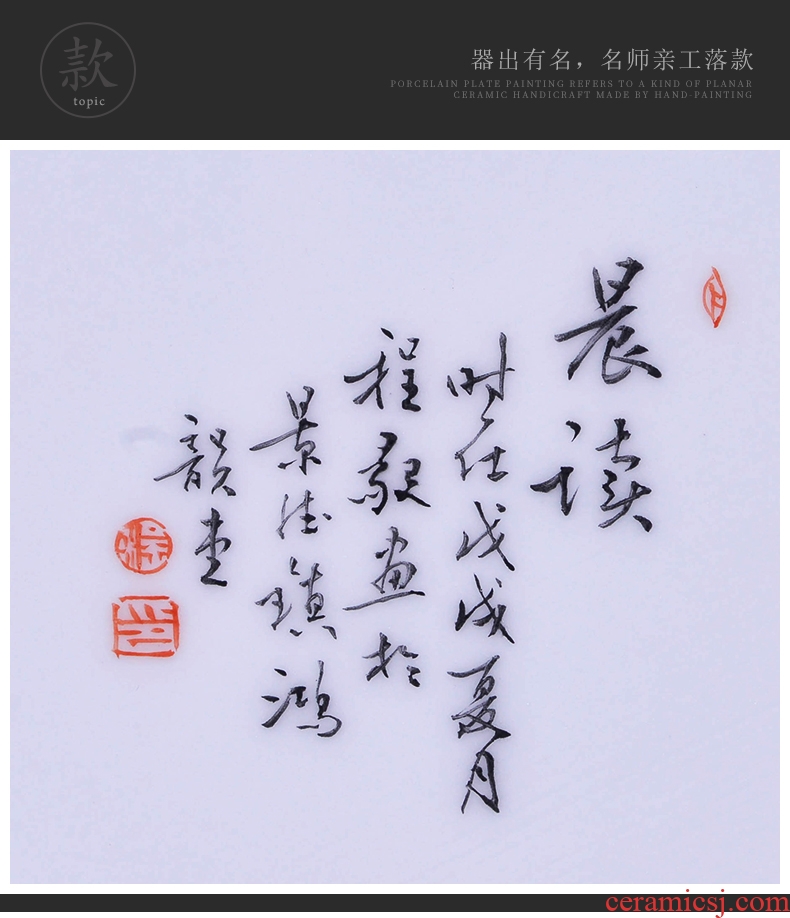 款
topic
器出有名，名师亲工落款
PORCELAIN PLATE PAINTING REFERS TO A KIND OF PLANAR
CERAMIC HANDICRAFT MADE BY HAND-PAINTING
晨读
时在戊戌夏月
程毅画於
景德镇鸿
韵堂
ceramicsj.com